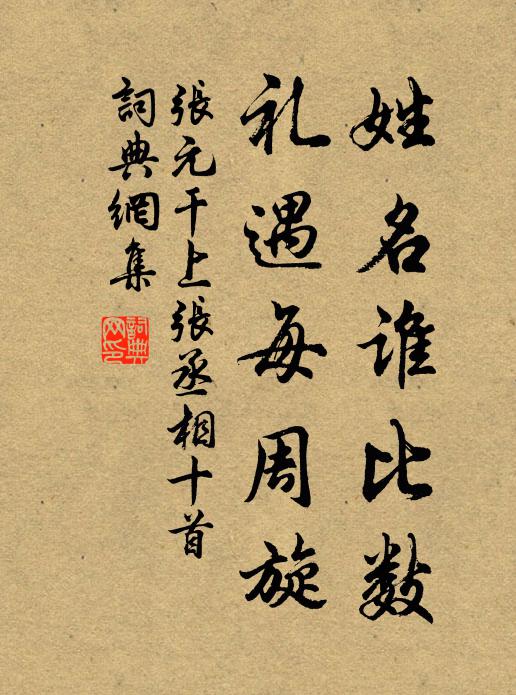 姓名谁比数
礼遇每周旋
張元干上張丞相十首
詞典網集
詞典網印